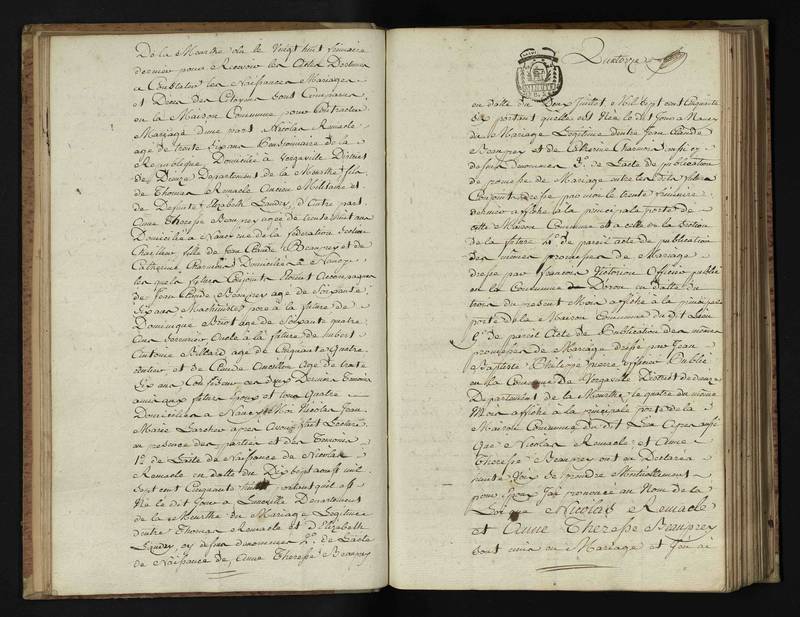 De la Meurthe du le Vingt huit frimaire
dernier pour Recevoir les Actes Destinés
a Constater les Naissances Mariages
et Deces des Citoyens sont Comparus
en la Maison Commune pour Contracter
Mariage d'une part Nicolas Remacle
age de trente Six ans Pensionnaire de la
Republique Domicilié a Vezgaville District
de Dieuze Departement de la Meurthe fils
de Thomas Remacle Ancien Militaire et
de Defunte Elizabeth Landry, d'Autre part
Anne Theresse Beauprey agée de trente huit ans
Domiciliée a Nancy rue de la fédération Section
fille de Jean Claude Beauprey et de
Catherine Charnoir Domiciliée a Nancy
les quels futurs Conjoints Etoient Accompagnés
de Jean Claude Beauprey age de Soixante
Six ans Pere a la future de
Dominique Briot age de Soixante quatre
ans Serrurier, Oncle a la future de Imbert
Antoine Billard age de Cinquante Quatre
et de Claude age de trente
Six ans ces Deux Derniers Temoins
amis aux futurs Epoux et tous Quatre
Domiciliés a Nancy Moi Nicolas Jean
Marie apres avoir fait Lecture
en presence des parties et des Temoins
1º. de Lacte de Naissance de Nicolas
Remacle en datte du Dix Sept aoust mil
Sept cent Cinquante huit portant quil est
Né le dit Jour a Luneville Departement
de la Meurthe du Mariage Legitime
d'entre Thomas Remacle et d'Elizabeth
Landry, cy dessus denommés 2º. de Lacte
de Naissance de Anne Theresse Beauprey
Quatorze
en datte du Deux Juillet Mil Sept cent Cinquante
Six portant quelle est Née le dit Jour a Nancy
du Mariage Legitime d'entre Jean Claude
Beauprey et de Catherine Charnoir aussi cy
dessus denommés 3º. de Lacte de publication
de promesse de Mariage entre les dits futurs
Conjoints dressé par moi le trente frimaire
dernier affiché a la principale porte de
cette Maison Commune et a celle de la Section
de la future 4º. de pareil acte de publication
des mêmes promesses de Mariage
dressé par francois Victorion Officier public
en la Commune de en datte du
trois du present Mois affiché a la principale
porte de la Maison Commune du dit Lieu
5º. de pareil Acte de Publication des mêmes
promesses de Mariage dressé par Jean
Baptiste Philippe officier Public
en la Commune de Vergaville District de dieuze
Departement de la Meurthe, le quatre du même
Mois affiché a la principale porte de la
Maison Commune du dit Lieu Apres aussi
Que Nicolas Remacle et Anne
Theresse Beauprey ont eu Declaré a
haute Voix se prendre Mutuellement
pour Epoux Jai prononcé au Nom de la
Loi que Nicolas Remacle
et Anne Theresse Beauprey
sont unis en Mariage et Jen ai